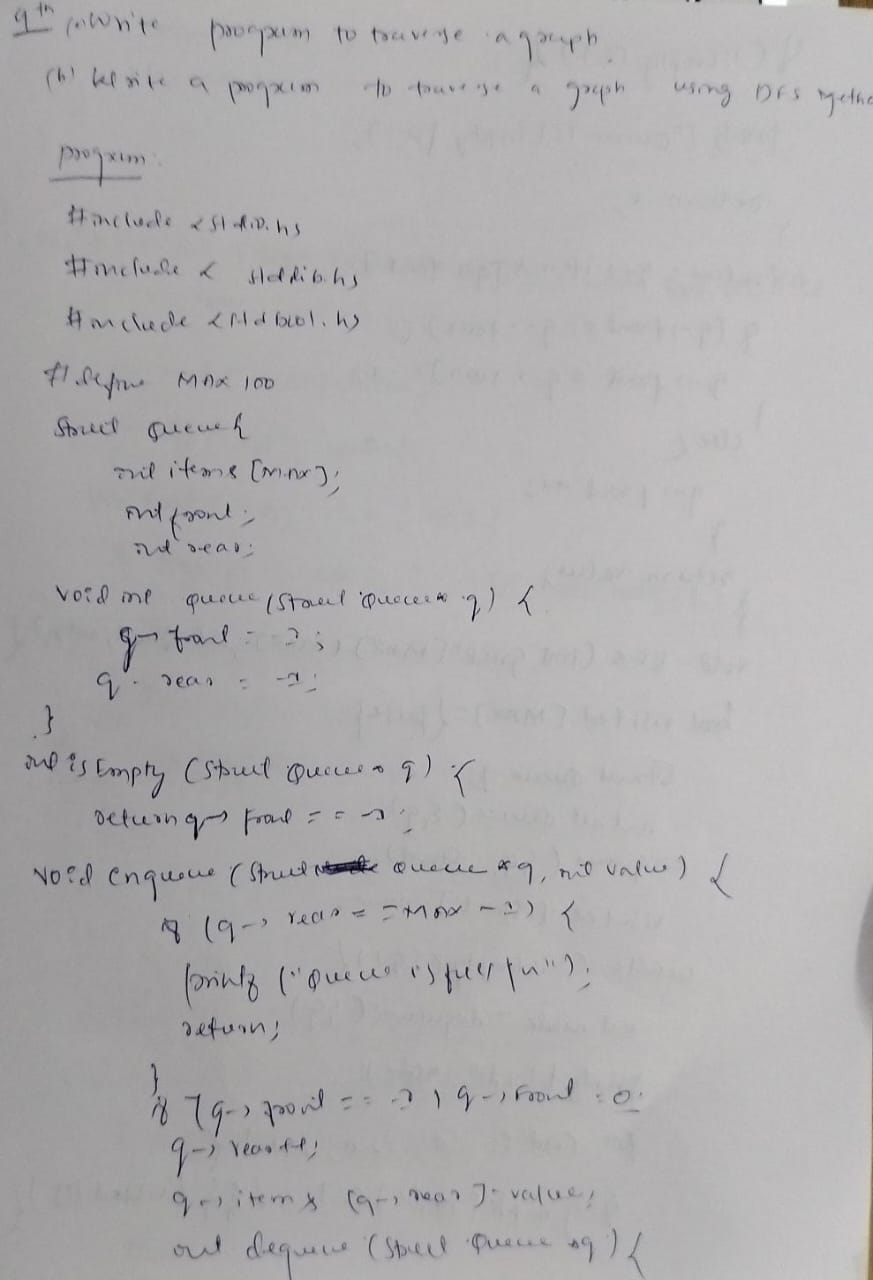 9th (a) Write program to traverse a graph.
(b) Write a program to traverse a graph using DFS Metho
program:
#include <stdio.h>
#include < stdlib.h>
#include <stdbool.h>
#define MAX 100
Struct Queue {
int items [MAX];
int front;
int rear;
void queue (Struct Queue* q) {
q→ front = ;
q. rear = -1;
}
int is Empty (Struct Queue * q) {
return q→ front = = -1;
void enqueue (Struct Queue *q, int value) {
if (q→ rear = = MAX -1) {
printf ("Queue is full \n");
return;
}
if (q→ front == -1) q→ front = 0;
q→ rear++;
q→ items [q→ rear] = value;
int dequeue (Struct Queue *q) {